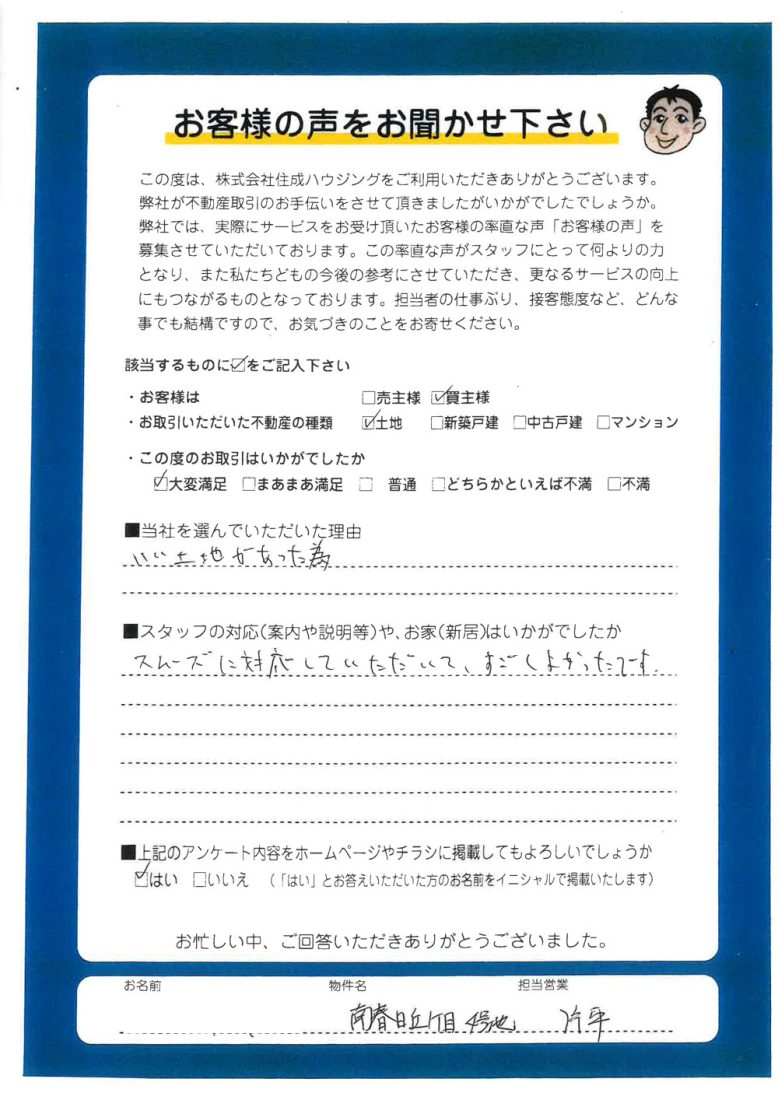 お客様の声をお聞かせ下さい
この度は、株式会社住成ハウジングをご利用いただきありがとうございます。
弊社が不動産取引のお手伝いをさせて頂きましたがいかがでしたでしょうか。
弊社では、実際にサービスをお受け頂いたお客様の率直な声「お客様の声」を
募集させていただいております。この率直な声がスタッフにとって何よりの力
となり、また私たちどもの今後の参考にさせていただき、更なるサービスの向上
にもつながるものとなっております。担当者の仕事ぶり、接客態度など、どんな
事でも結構ですので、お気づきのことをお寄せください。
該当するものに☑をご記入下さい
・お客様は □売主様 ☑買主様
・お取引いただいた不動産の種類 ☑土地 □新築戸建 □中古戸建 □マンション
・この度のお取引はいかがでしたか
☑大変満足 □まあまあ満足 □ 普通 □どちらかといえば不満 □不満
■当社を選んでいただいた理由
いい土地があった為
■スタッフの対応(案内や説明等)や、お家(新居)はいかがでしたか
スムーズに対応していただいて、すごくよかったです。
■上記のアンケート内容をホームページやチラシに掲載してもよろしいでしょうか
☑はい □いいえ (「はい」とお答えいただいた方のお名前をイニシャルで掲載いたします)
お忙しい中、ご回答いただきありがとうございました。
お名前 物件名 担当営業
南春日丘1丁目 4号地 片平